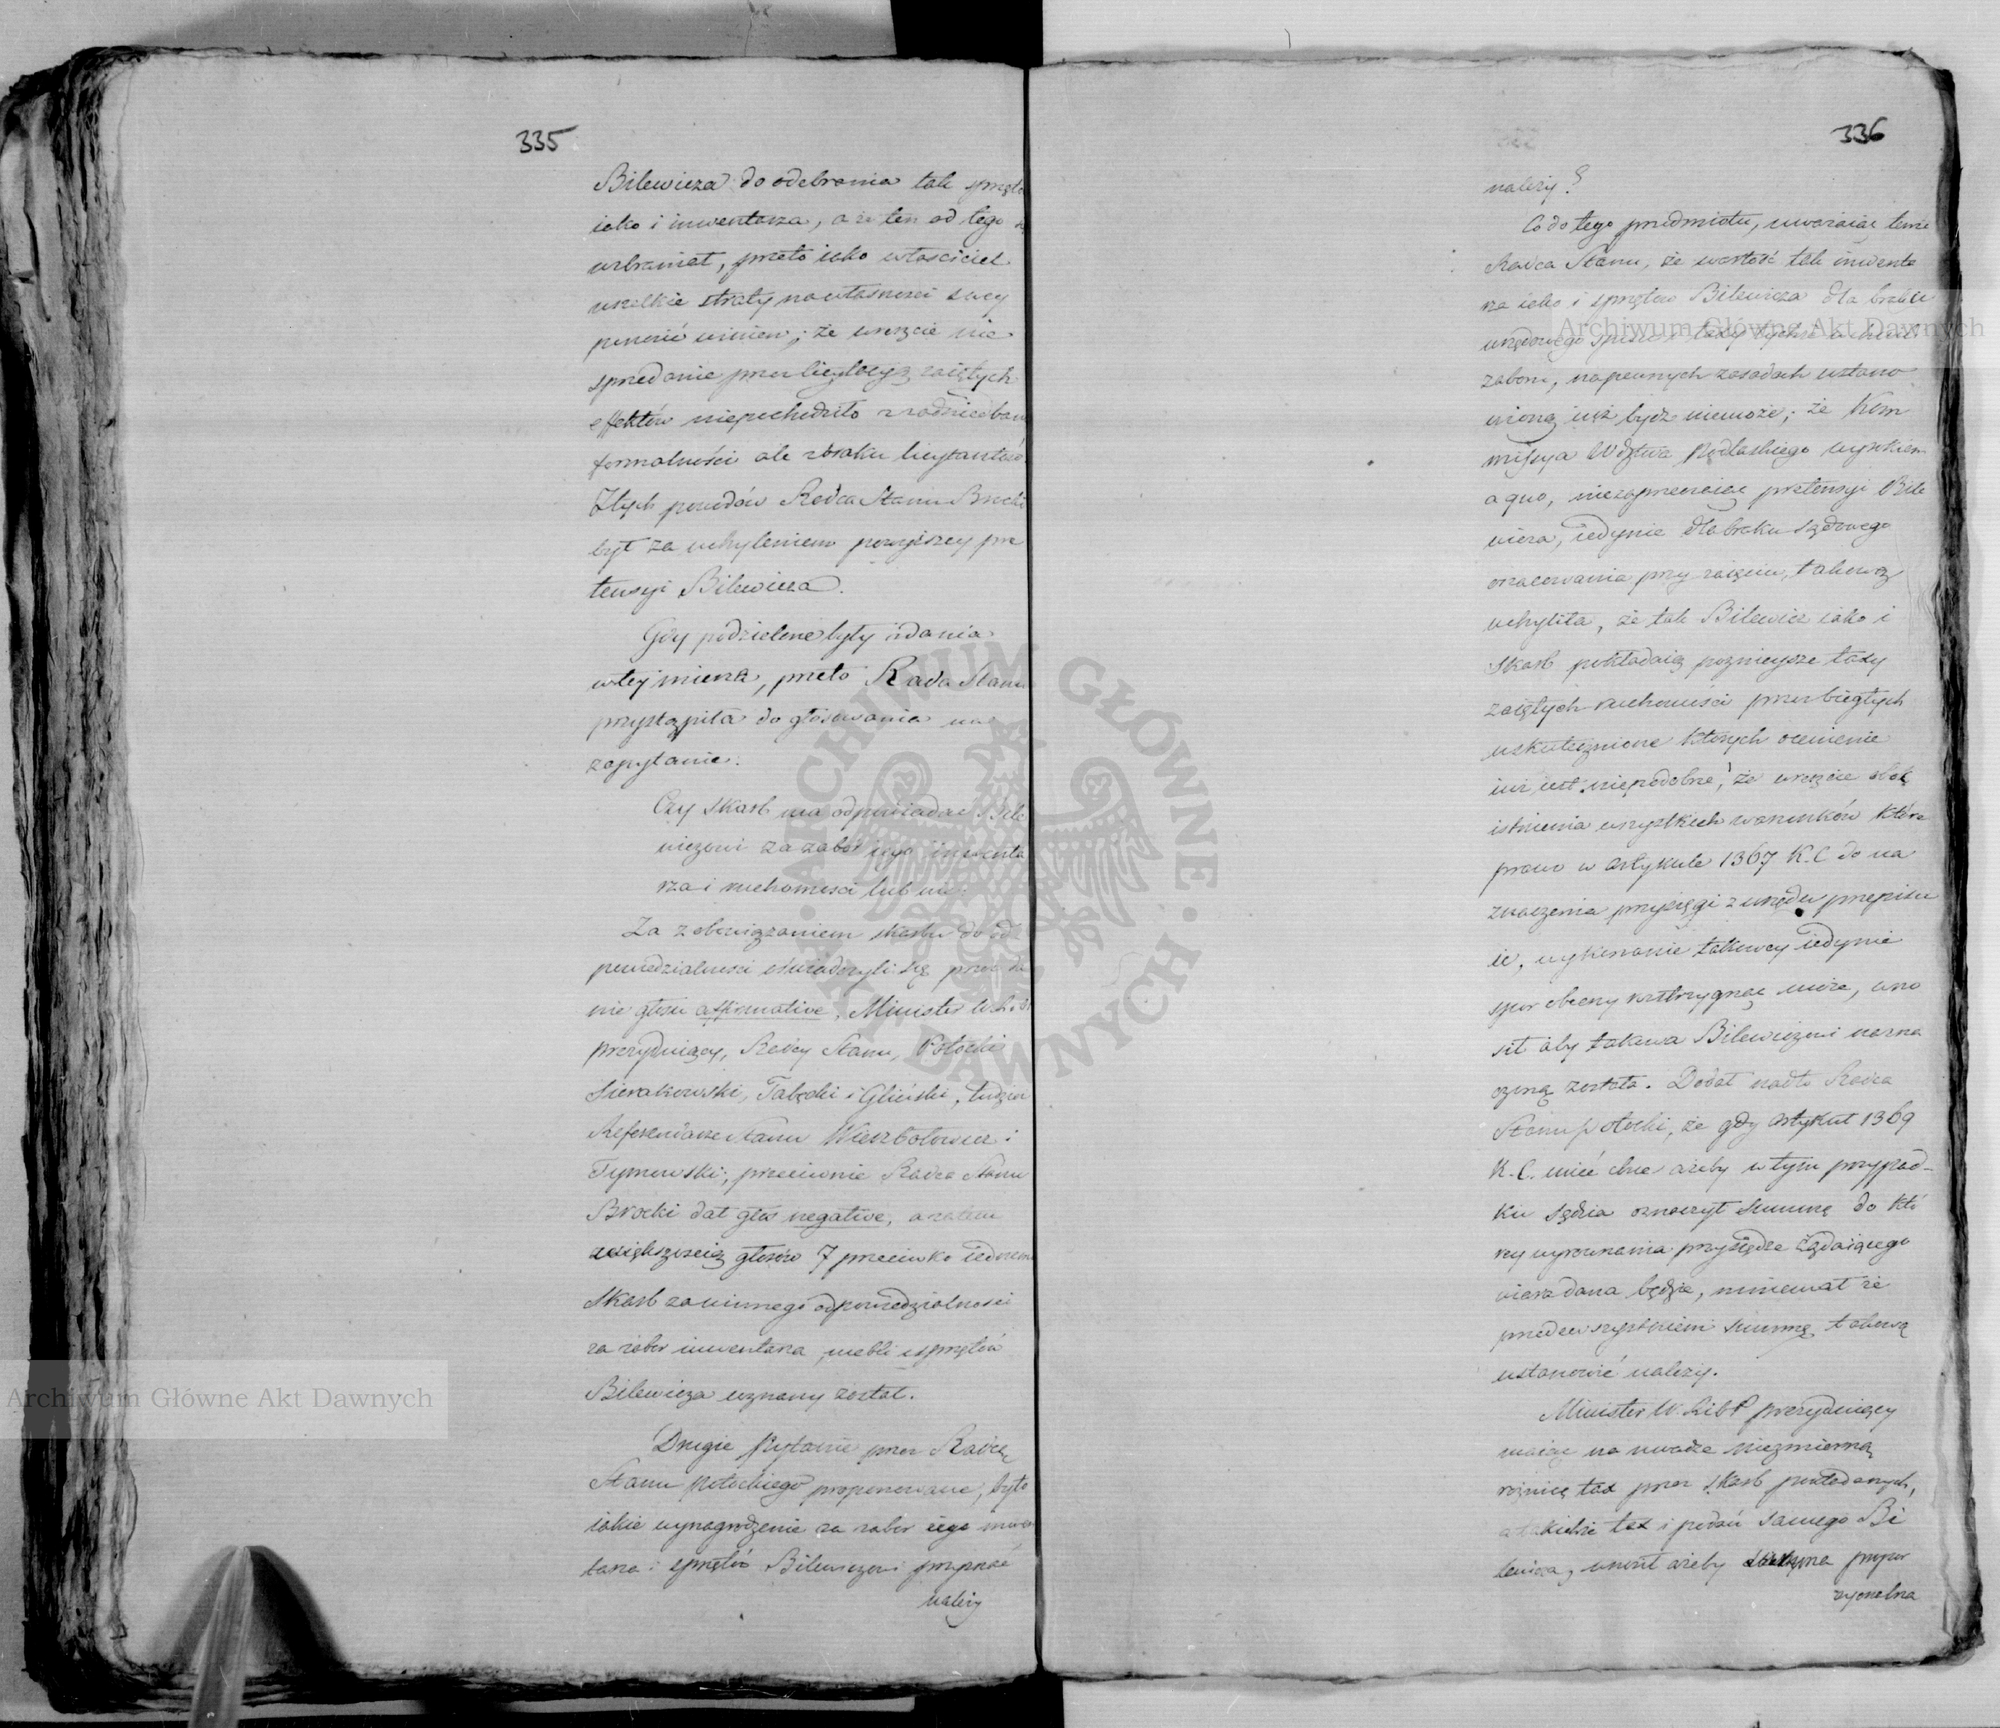 335
Bilewicza do odebrania tak sprzętó
iako i inwentarza, a że ten od tego
wzbraniał, przeto iako właściciel
wszelkie straty na własności swey
ponosić winien; że wreszcie nie
sprzedanie przez licytacyą zaiętych
effektów niepochodziło z zaniedbania
formalności ale z braku licytantów.
Z tych powodów Radca Stanu Brocki
był za uchyleniem powyższey pre
tensyi Bilewicza.
Gdy podzielone były zdania
w tey mierze, przeto Rada Stanu
przystąpiła do głosowania na
zapytanie:
Czy Skarb ma odpowiadać Bile
wiczowi za zabór iego inwenta
rza i ruchomości lub nie.
Za zobowiązaniem skarbu do od
powiedzialności oświadczyli się przez da
nie głosu affirmative, Minister
prezyduiący, Radcy Stanu, Potocki
Sierakowski, Tabęcki i Gliński, tudzież
Referendarze Stanu Wierzbołowicz i
Tymowski; przeciwnie Radca Stanu
Brocki dał głos negative, a zatem
większością głosów 7 przeciwko iednemu
Skarb za winnego odpowiedzialności
za zabor inwentarza, mebli i sprzętów
Bilewicza uznany został.
Drugie pytanie przez Radcę
Stanu Potockiego proponowane, było
iakie wynagrodzenie za zabor iego inwen
tarza i sprzętów Bilewiczowi przyznać
należy
336
należy?
Co do tego przedmiotu, uważaiąc tenże
Radca Stanu, że wartość tak inwenta
rza iako i sprzętów Bilewicza dla braku
urzędowego spisu i taxy tychże w chwili
zaboru, na pewnych zasadach ustano
wioną iuż bydź niemoże; że Kom
missya Wdztwa Podlaskiego wyrokiem
a quo, niezaprzeczaiąc pretensyi Bile
wicza, iedynie dla braku sądowego
oszacowania przy zaięciu, takową
uchyliła, że tak Bilewicz iako i
Skarb pokładaią poznieysze taxy
zaiętych ruchomości przez biegłych
uskutecznione których ocenienie
iuż iest niepodobne; że wreszcie obok
istnienia wszystkich warunków które
prawo w artykule 1367 K.C do na
znaczenia przysięgi z urzędu przepisu
ie, wykonanie takowey iedynie
spor obecny rozstrzygnąć może, wno
sił aby takowa Bilewiczowi nazna
czoną została. Dodał nadto Radca
Stanu Potocki, że gdy artykuł 1369
K.C. mieć chce ażeby w tym przypad-
ku sędzia oznaczył Summę do któ
rey wyrównania przysiędze żądaiącego
wiara dana będzie, mniemał że
przedewszystkiem summę takową
ustanowić należy.
Minister W. R i O P prezyduiący
maiąc na uwadze niezmierną
różnicę tax przez Skarb pokładanych,
a takichże tax i podań samego Bi
lewicza, wnosił ażeby summa propor
cyonalna
Archiwum Główne Akt Dawnych
Archiwum Główne Akt Dawnych
ARCHIWUM GŁÓWNE AKT DAWNYCH